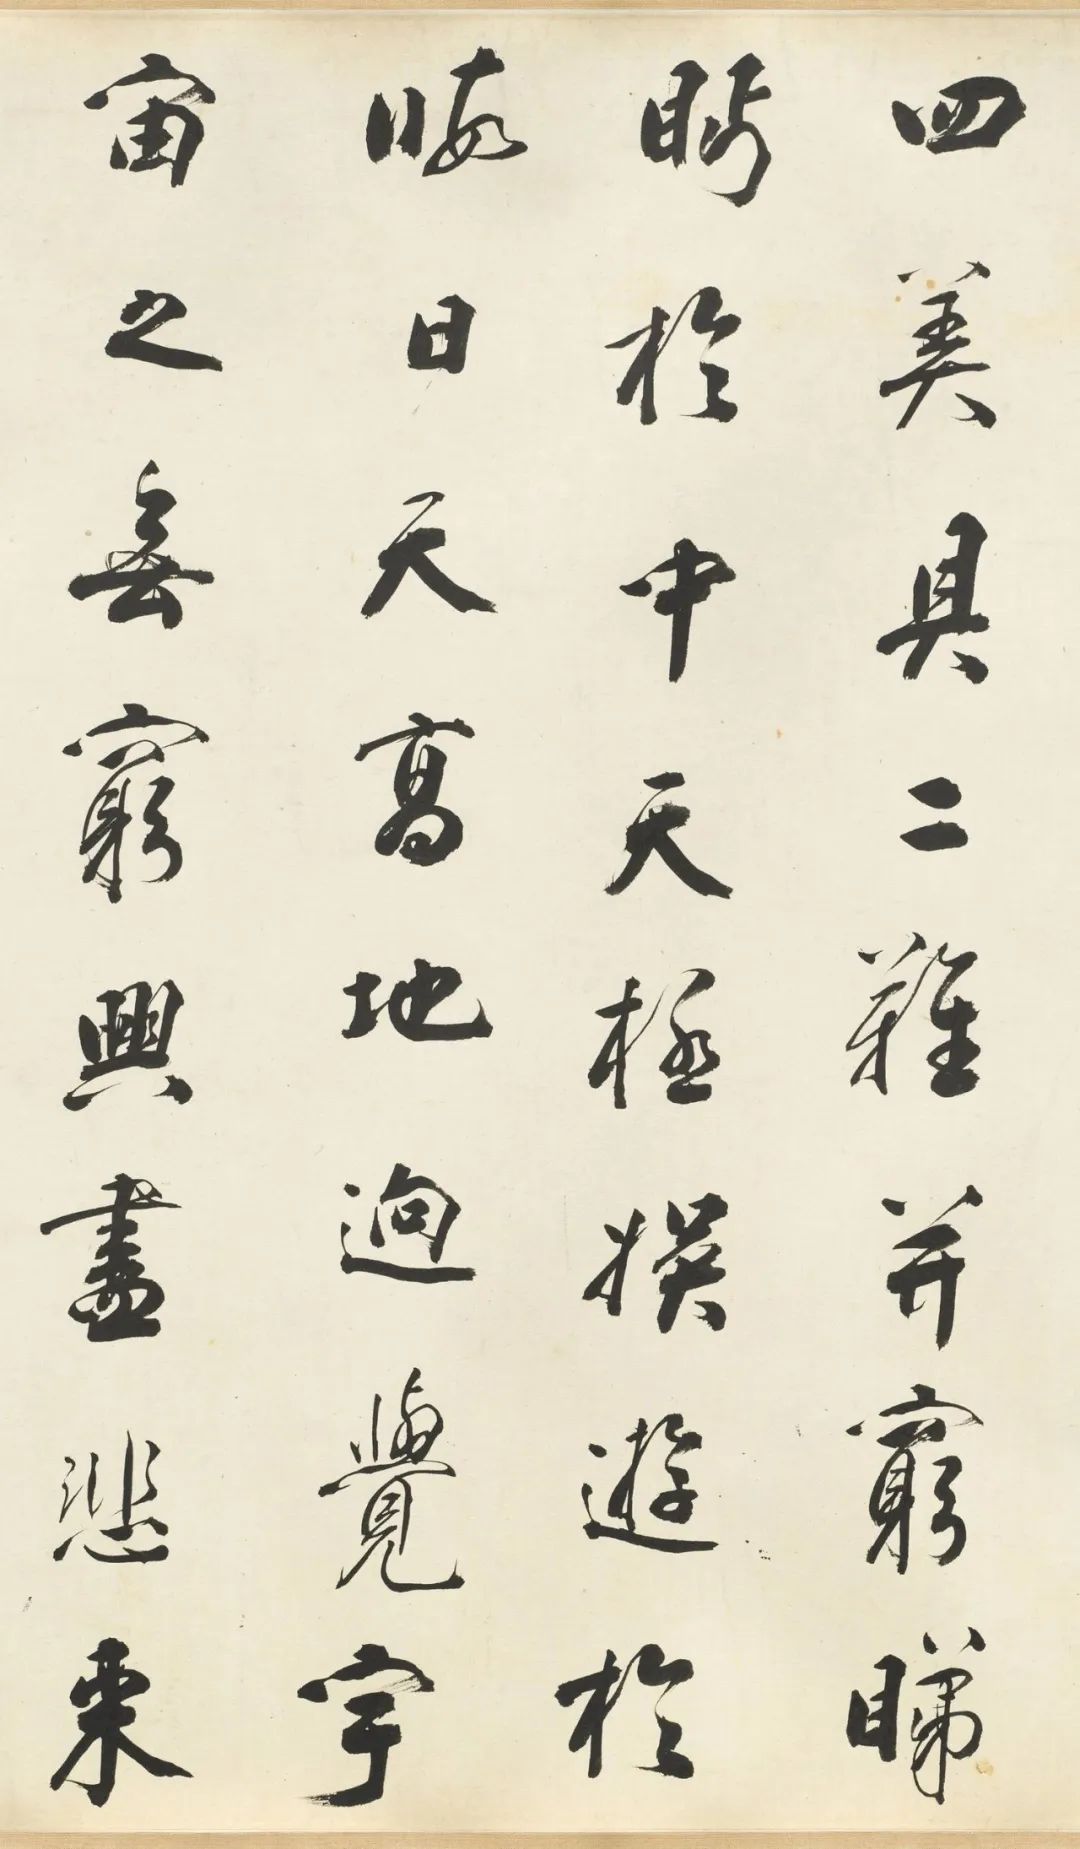 四美具二難并窮睇
眄於中天極娛遊於
暇日天高地迥覺宇
宙之無窮興盡悲來